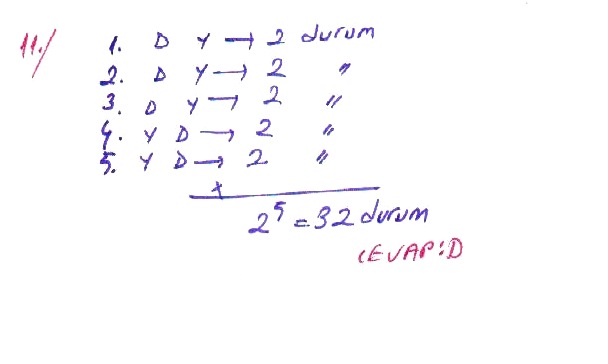 11./ 1. D Y → 2 durum
2. D Y → 2 "
3. D Y → 2 "
4. Y D → 2 "
5. Y D → 2 "
x
2⁵ = 32 durum
CEVAP: D